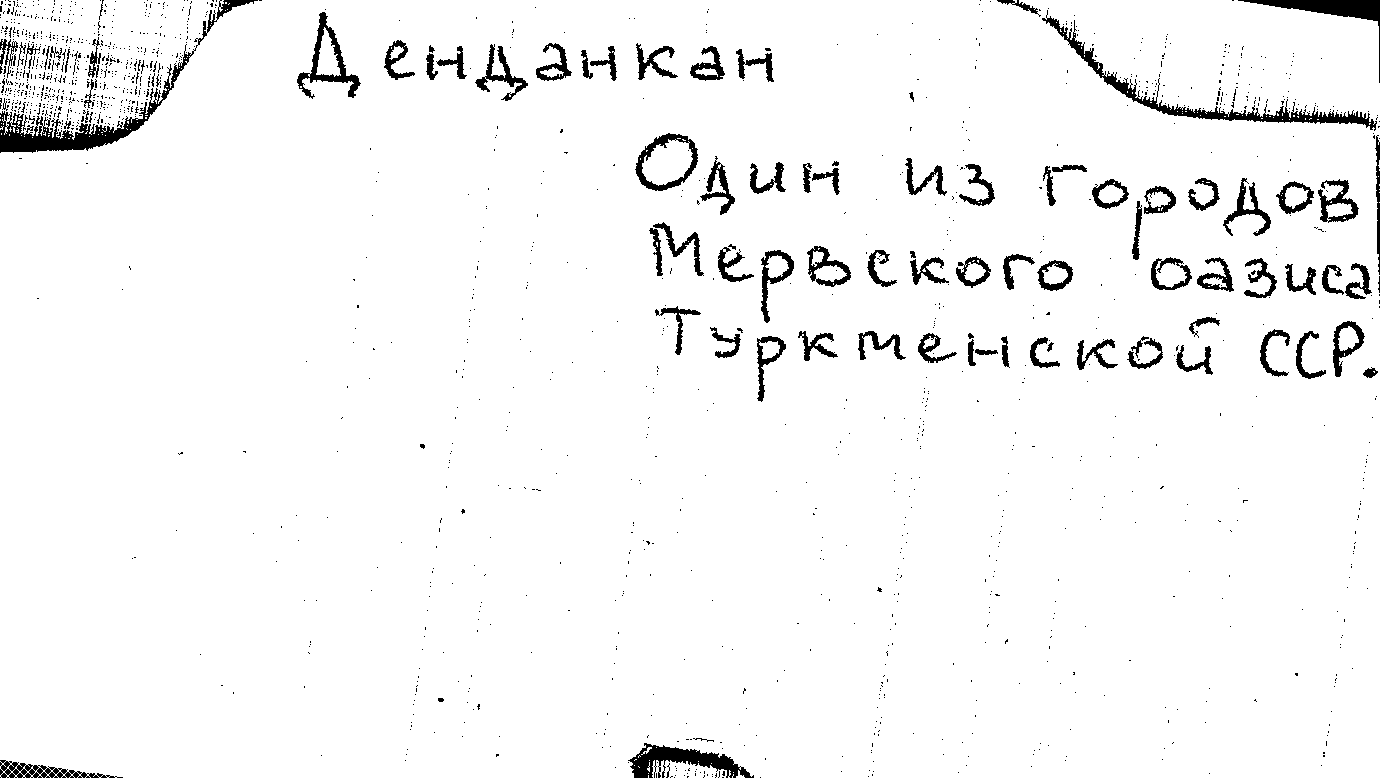 Денданкан
Один из городов
Мервского оазиса
Туркменской ССР.